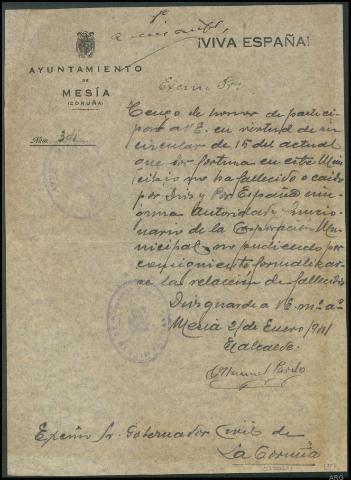 ¡VIVA ESPAÑA!
AYUNTAMIENTO
DE
MESÍA
(CORUÑA)
Núm.
Excmo Sr.
Tengo de honor de partici
par a V.E. en virtud de su
circular de 15 del actual
que por fortuna en este Mun
icipio no ha fallecido o caido
por Dios y Por España nin
guna Autoridad y funcio
nario de la Corporación Mu
nicipal, no pudiendo por
consiguiente formalizar
se la relación de fallecidos
Dios guarde a V.E. m.ª a.ª
Mesía 21 de Enero 1941
El alcalde.
Manuel Pardo
Excmo Sr. Gobernador Civil de
La Coruña